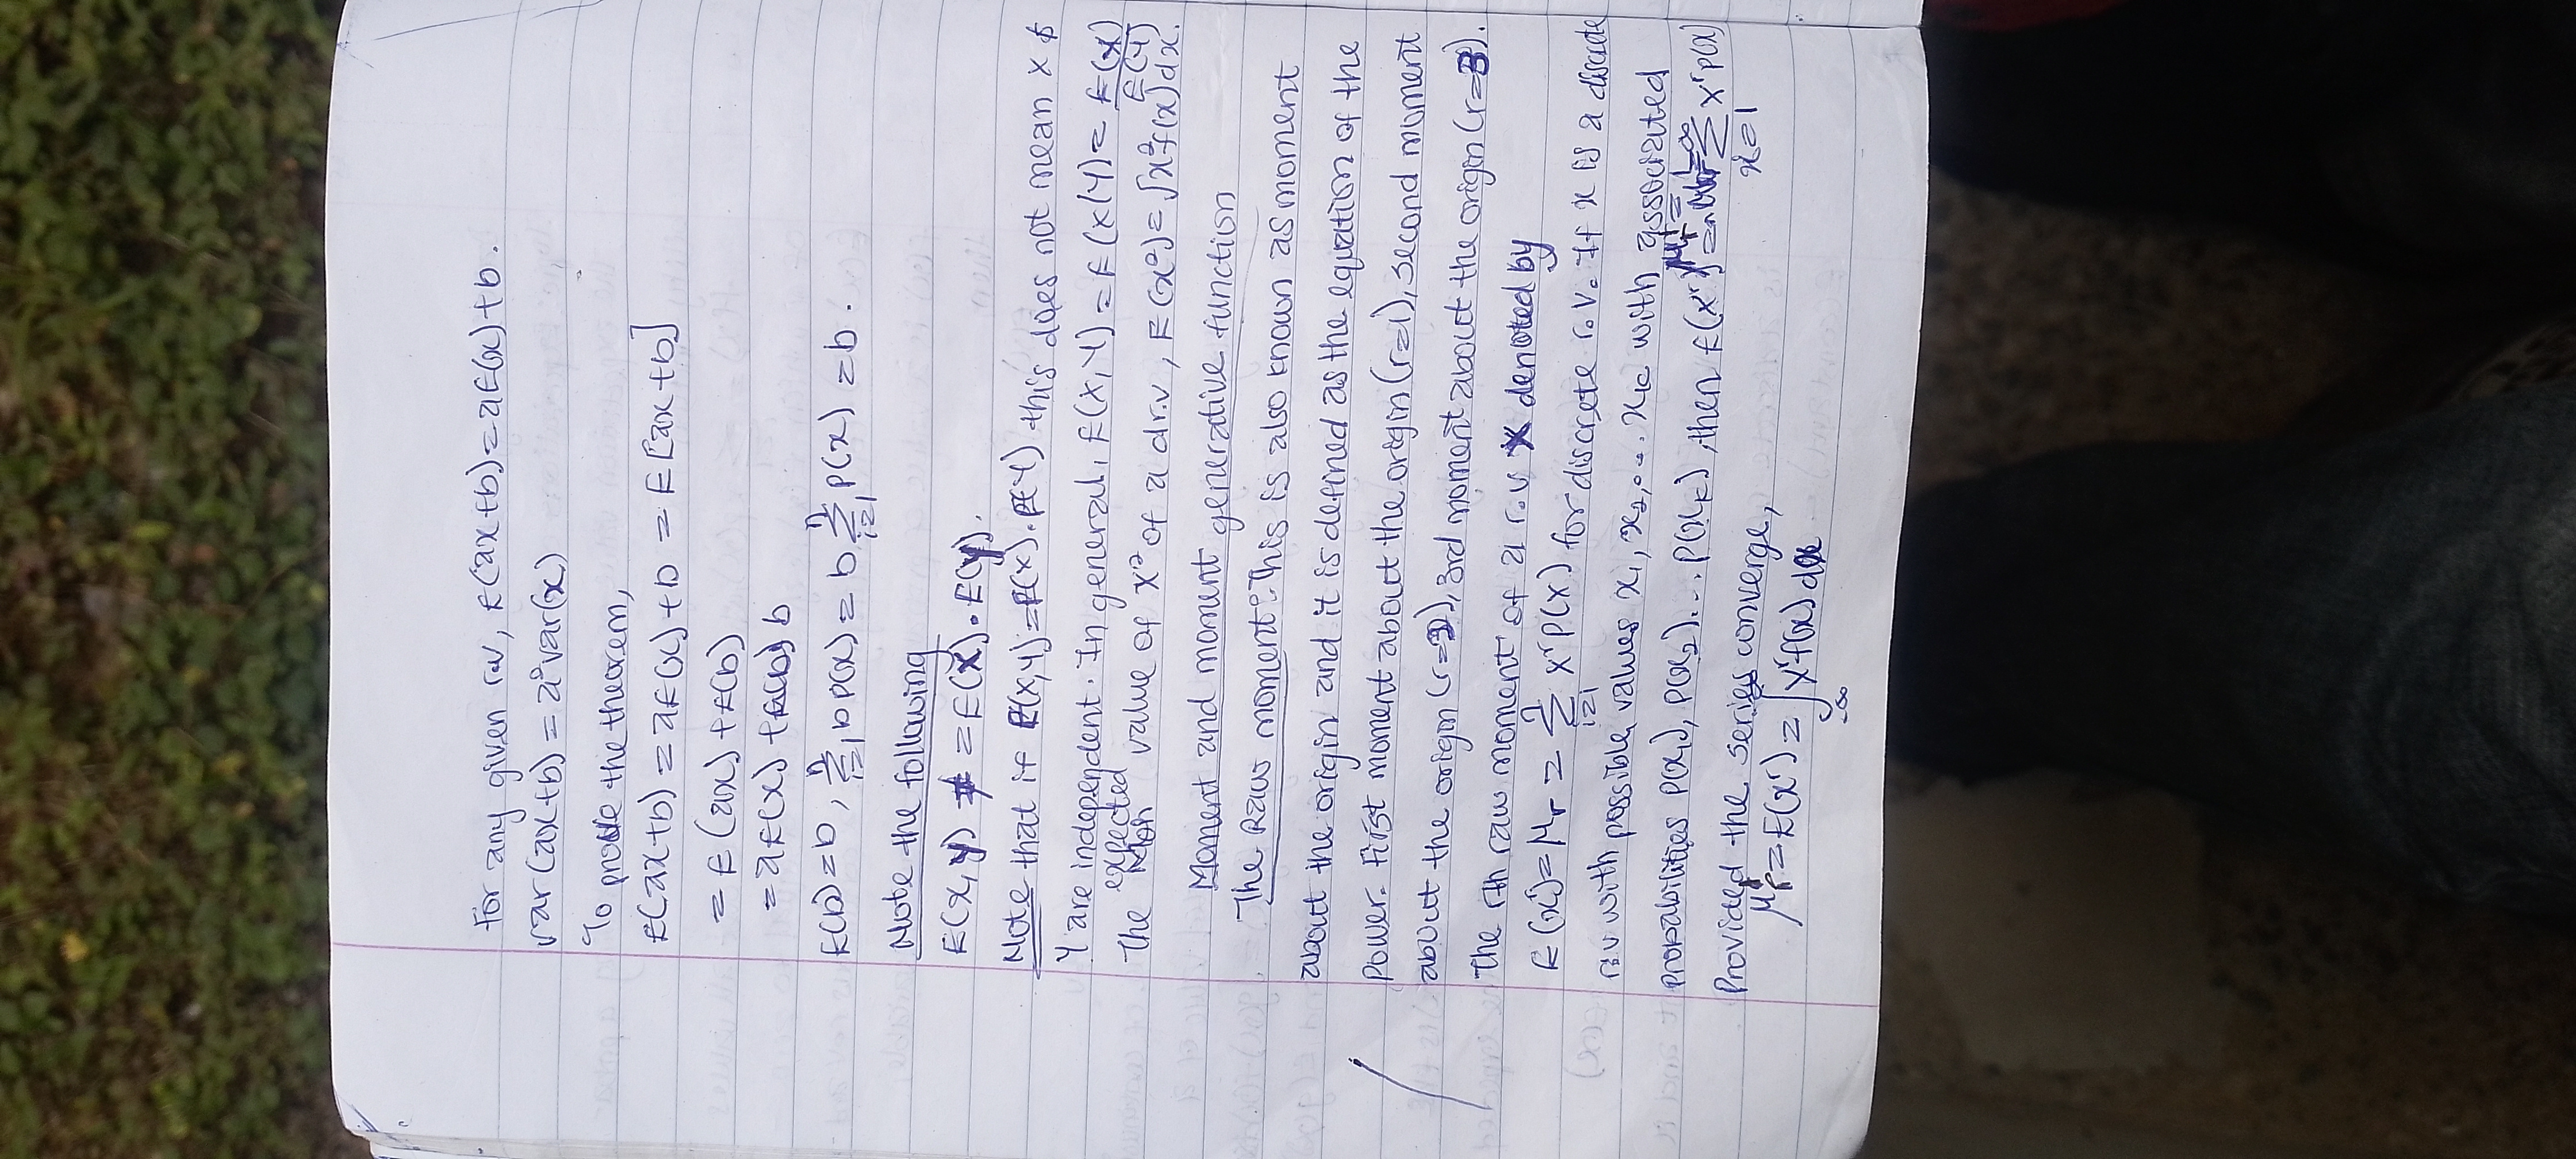 For any given r.v, E(ax+b) = aE(x)+b.
var(ax+b) = a²var(x)
To prove the theorem,
E(ax+b) = aE(x)+b = E[ax+b]
= E(ax)+E(b)
= aE(x)+ b
E(b)=b, n∑i=1 b P(x) = b n∑i=1 P(x) = b.
Note the following
E(x,y) ≠ = E(x).E(y).
Note that if E(x,y)=E(x).E(y) this does not mean x &
y are independent. In general, E(x,y) = E(x/y) = E(x)/E(y)
The expected value of x² of a d r.v, E(x²) = ∫x²f(x)dx.
Moment and moment generative function
The Raw moment: This is also known as moment
about the origin and it is defined as the equation of the
power. First moment about the origin (r=1), second moment
about the origin (r=2), 3rd moment about the origin (r=3).
The rth raw moment of a r.v x denoted by
E(xʳ)= μr = n∑i=1 xʳP(x) for discrete r.v. If x is a discrete
r.v with possible values x₁, x₂,.... xₖ with associated
probabilities P(x₁), P(x₂).... P(xₖ), then E(xʳ) = ∞∑x=1 xʳP(x)
Provided the series converge,
μr = E(xʳ) = ∫-∞ xʳf(x)dx